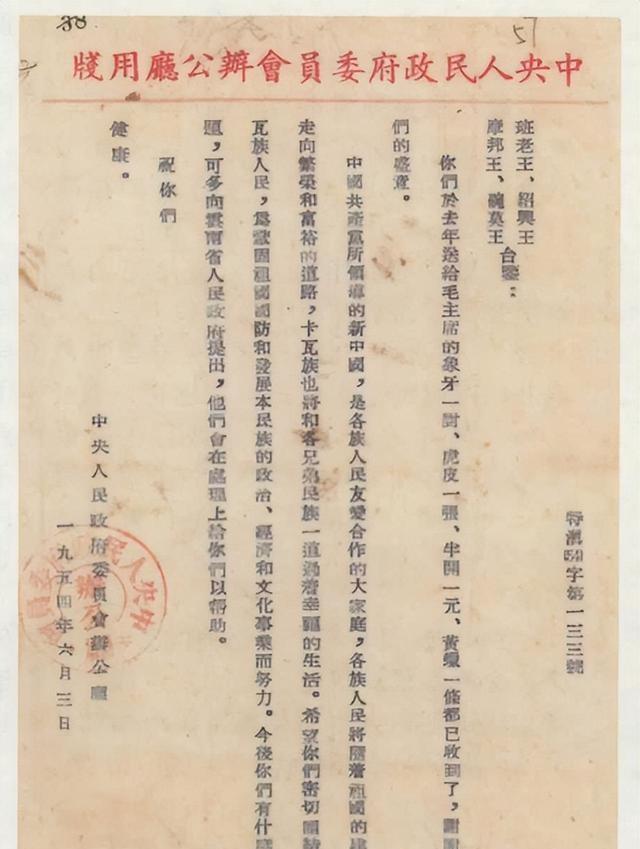 38
57
中央人民政府委員會辦公廳用牋
特滙字第一三三號
班老王、紹興王
摩邦王、碗莫王
台鑒：
你們於去年送給毛主席的象牙一對、虎皮一張、半開一元、黃蠟一條都已收到了，謝謝
們的盛意。
中國共產黨所領導的新中國，是各族人民友愛合作的大家庭，各族人民將隨着祖國的
走向繁榮和富裕的道路，卡瓦族也將和各兄弟民族一道過着幸福的生活。希望你們密切團結
瓦族人民，為鞏固祖國國防和發展本民族的政治、經濟和文化事業而努力。今後你們有什麼
題，可多向雲南省人民政府提出，他們會在處理上給你們以幫助。
祝你們
健康。
中央人民政府委員會辦公廳
一九五四年六月三日